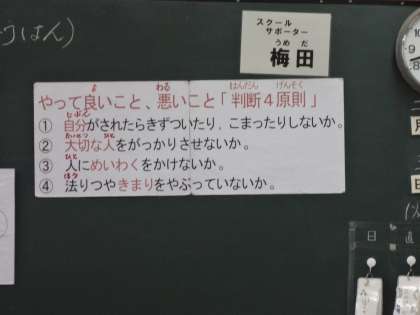 うはん)
スクール
サポーター
うめ だ
梅田
よ わる はんだん げんそく
やって良いこと、悪いこと「判断4原則」
じぶん
① 自分がされたらきずついたり、こまったりしないか。
たいせつ ひと
② 大切な人をがっかりさせないか。
ひと
③ 人にめいわくをかけないか。
ほう
④ 法りつやきまりをやぶっていないか。
月
日
日
直